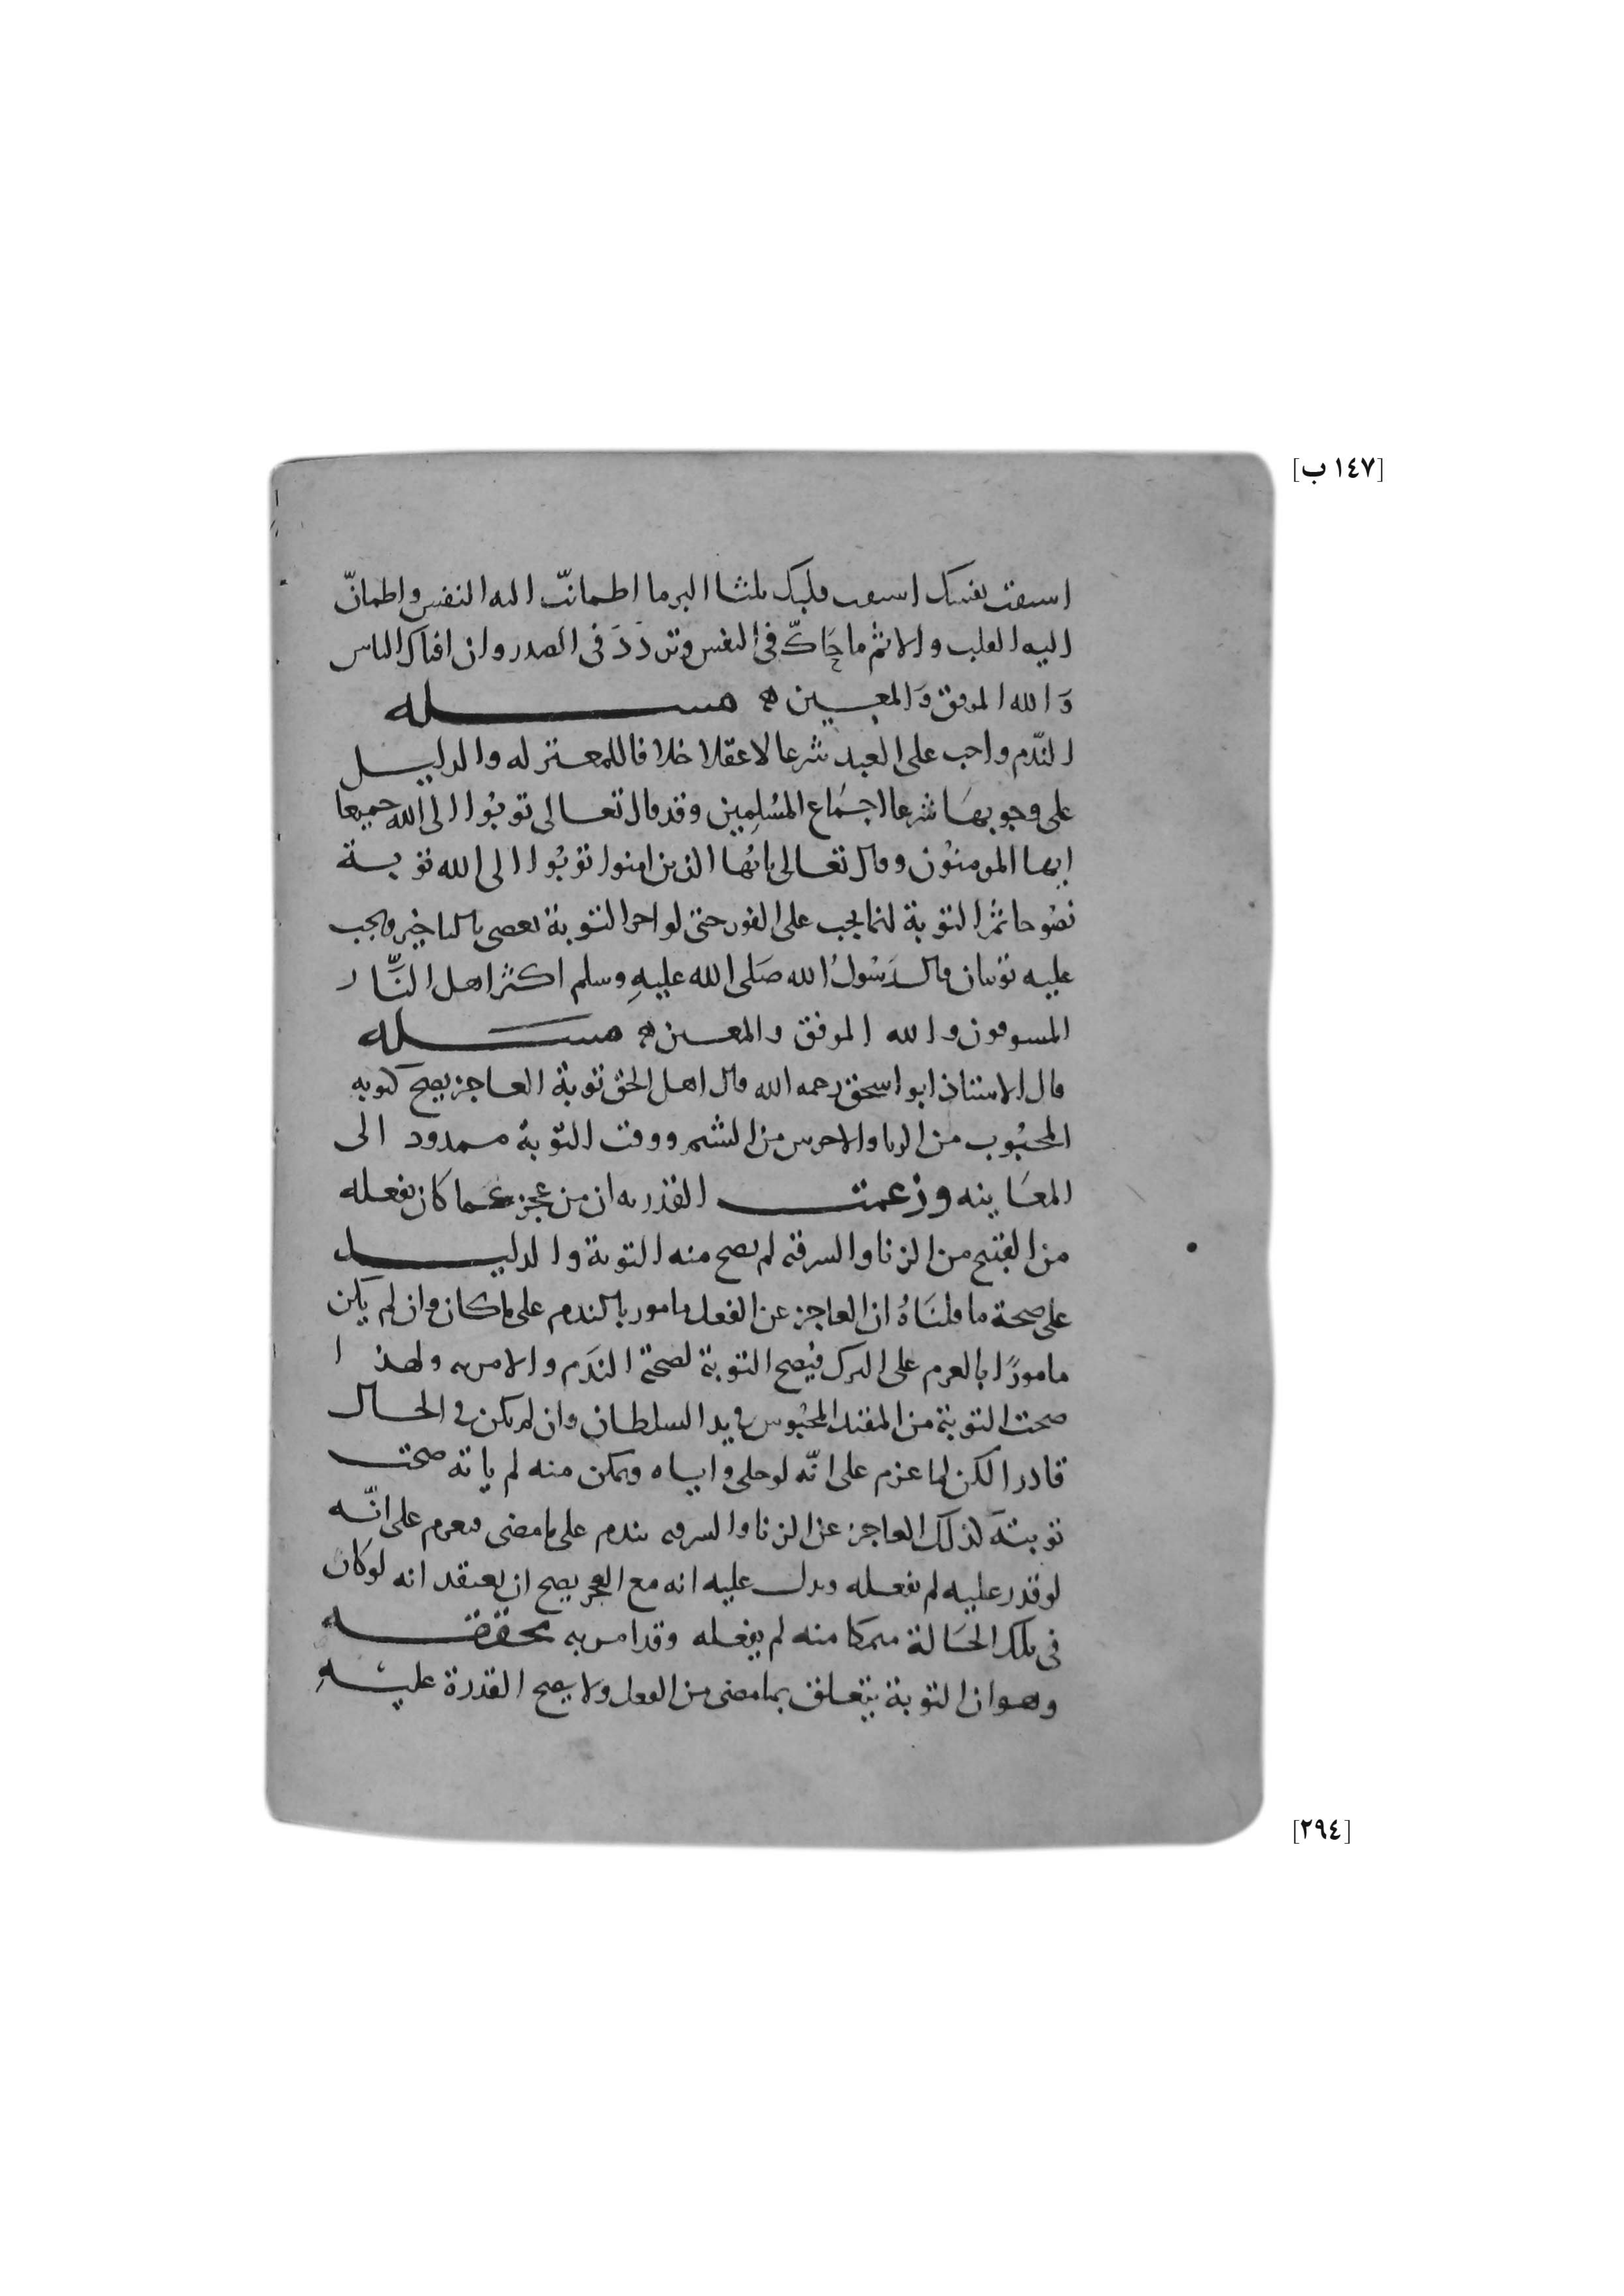 [١٤٧ ب]
استفت نفسك استفت قلبك ثلثا البر ما اطمانّت اليه النفس واطمانّ
اليه القلب والاثم ما حَاكّ في النفس وتردّدَ في الصدر وان افتاك الناس
وَالله الموفق وَالمعين ه مسله
النّدم واجب على العبد شرعا لا عقلا خلافا للمعتزله والدليل
على وجوبهَا شرعا اجمَاع المسُلمِين وقد قال تعالى توبُوا الى الله جميعا
ايها المومنوُن وقال تعالى يايُها الذين امنوا توبُوا الى الله توبة
نصُوحا ثمر التوبة انما يجب على الفور حتى لو اخر التوبة يعصي بالتاخير ويجب
عليه توبتان قال رَسُولُ الله صَلى الله عليهِ وسلم اكثر اهل النَّار
المسوفون والله الموفق والمعين ه مسله
قال الاستاذ ابو اسحق رحمه الله قال اهل الحق توبة العاجز يصح كتوبه
المجبُوب من الزنا والاخرس من الشتم ووقت التوبة ممدود الى
المعَاينه وزعمت القدريه ان من عجز عما كان يفعله
من القبيح من الزنا والسرقه لم يصح منه التوبة والدليل
على صحة ما قلنَاهُ ان العاجز عن الفعل مامور بالندم على ما كان وان لم يكن
مامورًا بالعزم على الترك فيصح التوبة لصحة الندَم والامر به ولهذا
صحت التوبة من المقيد المحبُوس في يد السلطان وان لم يكن في الحال
قادرا لكن لما عزم على انّه لو خلي واياه وتمكن منه لم ياته صحت
توبتهَ كذلك العاجز عن الزنا والسرقه يندم على ما مضى ويعزم على انّه
لو قدر عليه لم يفعله ويدل عليه انه مع العجز يصح ان يعتقد انه لو كان
في تلك الحَالة متمكنا منه لم يفعله وقد امر به محققه
وهو ان التوبة يتعلق بما مضى من الفعل ولا يصح القدرة عليهِ
[٢٩٤]